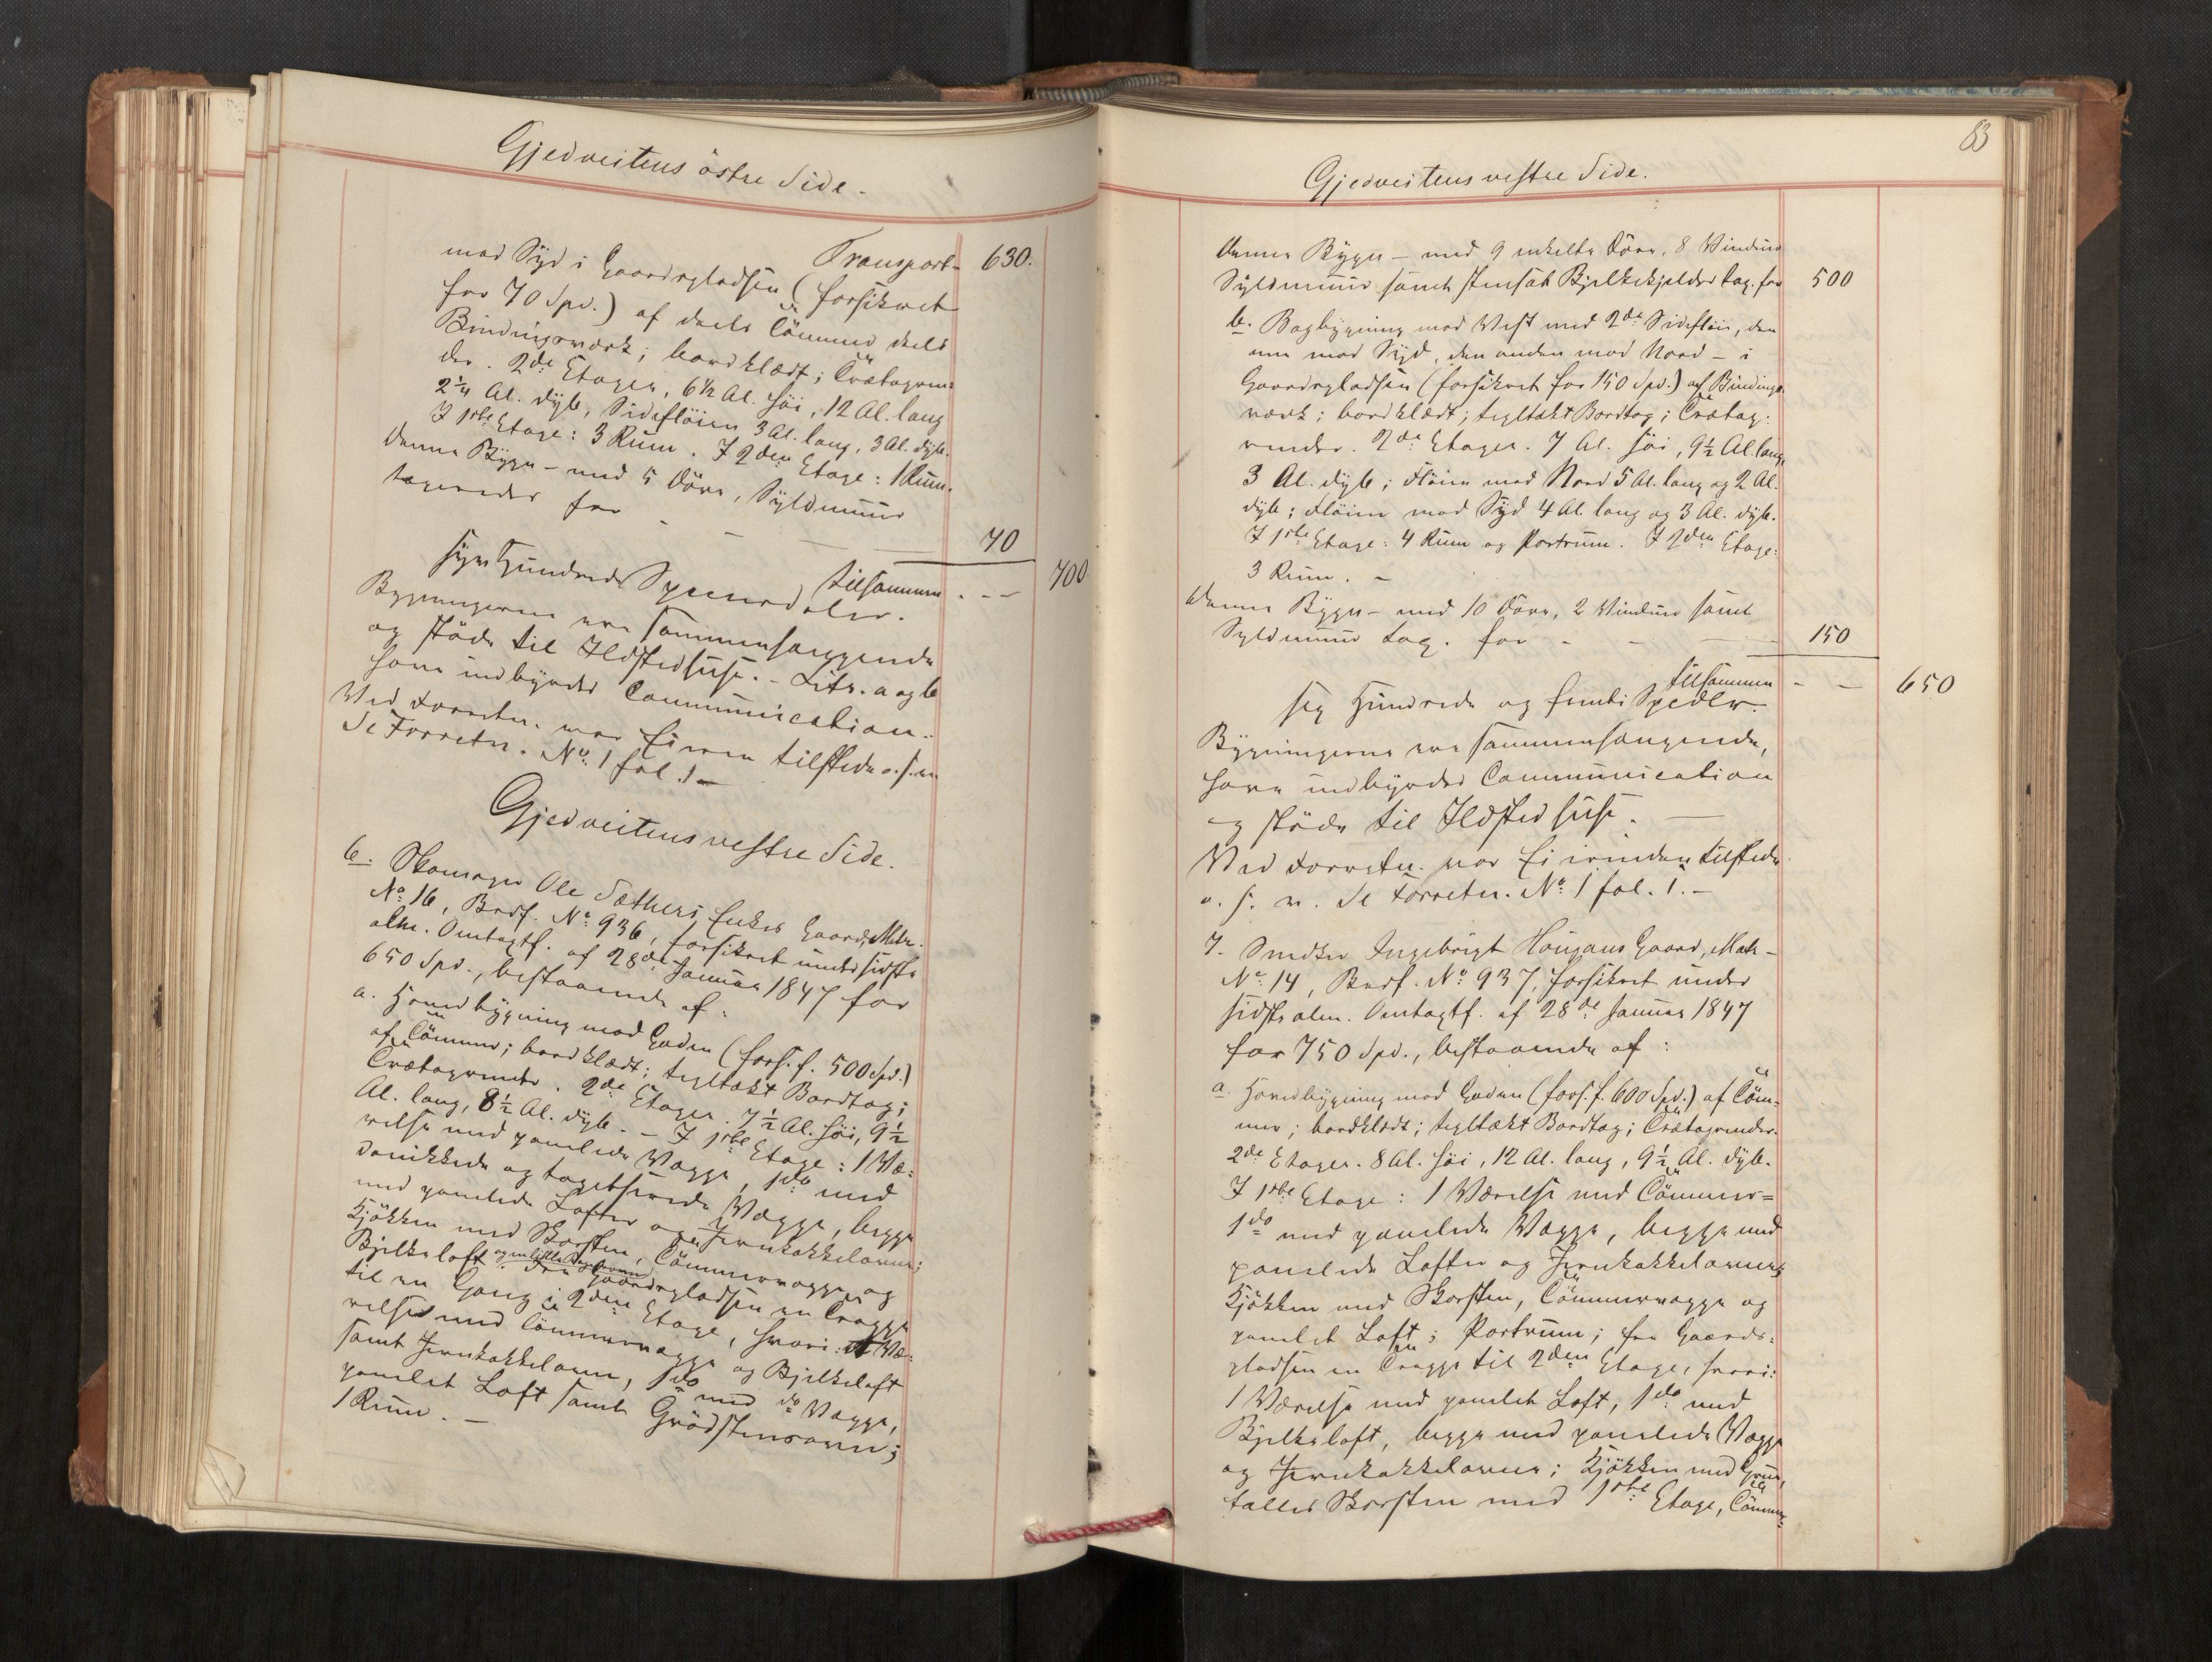 Gjedveitens östre Side.
Transport- 630.
mod Syd i Gaardspladsen (forsikret
for 70 Spd.) af deels Tömmer deels
Bindingsværk; bordklædt; Trætagren-
der. 2de Etager, 6½ Al. höi, 12 Al. lang
2¼ Al. dyb, Sidefløien 3 Al. lang, 3 Al. dyb.
I 1ste Etage: 3 Rum. I 2den Etage: 1 Rum.
Denne Bygn- med 5 Döre, Syldmuur
tagender for - - — 70
tilsammen - - - 700
Syv Hundrede Speciesdaler.
Bygningerne ere sammenhængende
og støde til Ildstedhuse. - Litr. a og b
have indbyrdes Communication.-
Ved Forretn. var Eieren tilstede o.s.v.
Se Forretn. No 1 fol. 1 —
Gjedveitens vestre Side.
6. Skomager Ole Sæthers Enkes Gaard, Matr.
No 16, Brdf. No 936, forsikret under sidste
alm. Omtaxtf. af 28de Januar 1847 for
650 Spd., bestaaende af:
a. Hovedbygning mod Gaden (forf. f. 500 Spd.)
af Tömmer; bordklædt; tegltækt Bordtag;
Trætagrender. 2de Etager. 7½ Al. höi, 9½
Al. lang, 8½ Al. dyb. - I 1ste Etage: 1 Væ-
relse med panelede Vægge, 1 do med
donikkede og tapetserede Vægge, begge
med panelede Lofter og Jernkakkelovne;
Kjökken med Skorsten, Tömmervægge og
Bjelkeloft og en liden Bagerovn. Fra Gaardspladsen en Trappe
til en Gang i 2den Etage, hvori: 1 Væ-
relse med Tömmervægge og Bjelkeloft
samt Jernkakkelovn, 1 do med do Vægge,
panelet Loft samt Grödstensovn;
1 Rum. —
83
Gjedveitens vestre Side.
Denne Bygn- med 9 enkelte Döre, 8 Vinduer
Syldmuur samt stensat Bjelkekjelder tax. for 500
b. Bagbygning mod Vest med 2de Sidefløie, den
ene mod Syd, den anden mod Nord - i
Gaardspladsen (forsikret for 150 Spd.) af Bindings-
værk; bordklædt; tegltækt Bordtag; Trætag-
render. 2de Etager. 7 Al. höi, 9½ Al. lang,
3 Al. dyb; Fløien mod Nord 5 Al. lang og 2 Al.
dyb; Fløien mod Syd 4 Al. lang og 3 Al. dyb.
I 1ste Etage: 4 Rum og Portrum. I 2den Etage:
3 Rum. -
Denne Bygn- med 10 Döre, 2 Vinduer samt
Syldmuur tax. for - - — 150
tilsammen - — 650
Sex Hundrede og femti Spcdlr.
Bygningerne ere sammenhængende,
have indbyrdes Communication
og støde til Ildstedhuse. —
Ved Forretn. var Ei tilstede
o. s. v. Se Forretn. No 1 fol. 1. -
7. Snedker Ingebrigt Haugans Gaard, Matr-
No 14, Brdf. No 937, forsikret under
sidste alm. Omtaxtf. af 28de Januar 1847
for 750 Spd., bestaaende af:
a. Hovedbygning mod Gaden (forf. f. 600 Spd.) af Töm-
mer; bordklædt; tegltækt Bordtag; Trætagrender.
2de Etager. 8 Al. höi, 12 Al. lang, 9½ Al. dyb.
I 1ste Etage: 1 Værelse med Tömmer-
1 do med panelede Vægge, begge med
panelede Lofter og Jernkakkelovne;
Kjökken med Skorsten, Tömmervægge og
panelet Loft; Portrum; fra Gaards-
pladsen en Trappe til 2den Etage, hvori:
1 Værelse med panelet Loft, 1 do med
Bjelkeloft, begge med panelede Vægge
og Jernkakkelovne; Kjökken med
Skorsten med 1ste Etage, Tömmer-